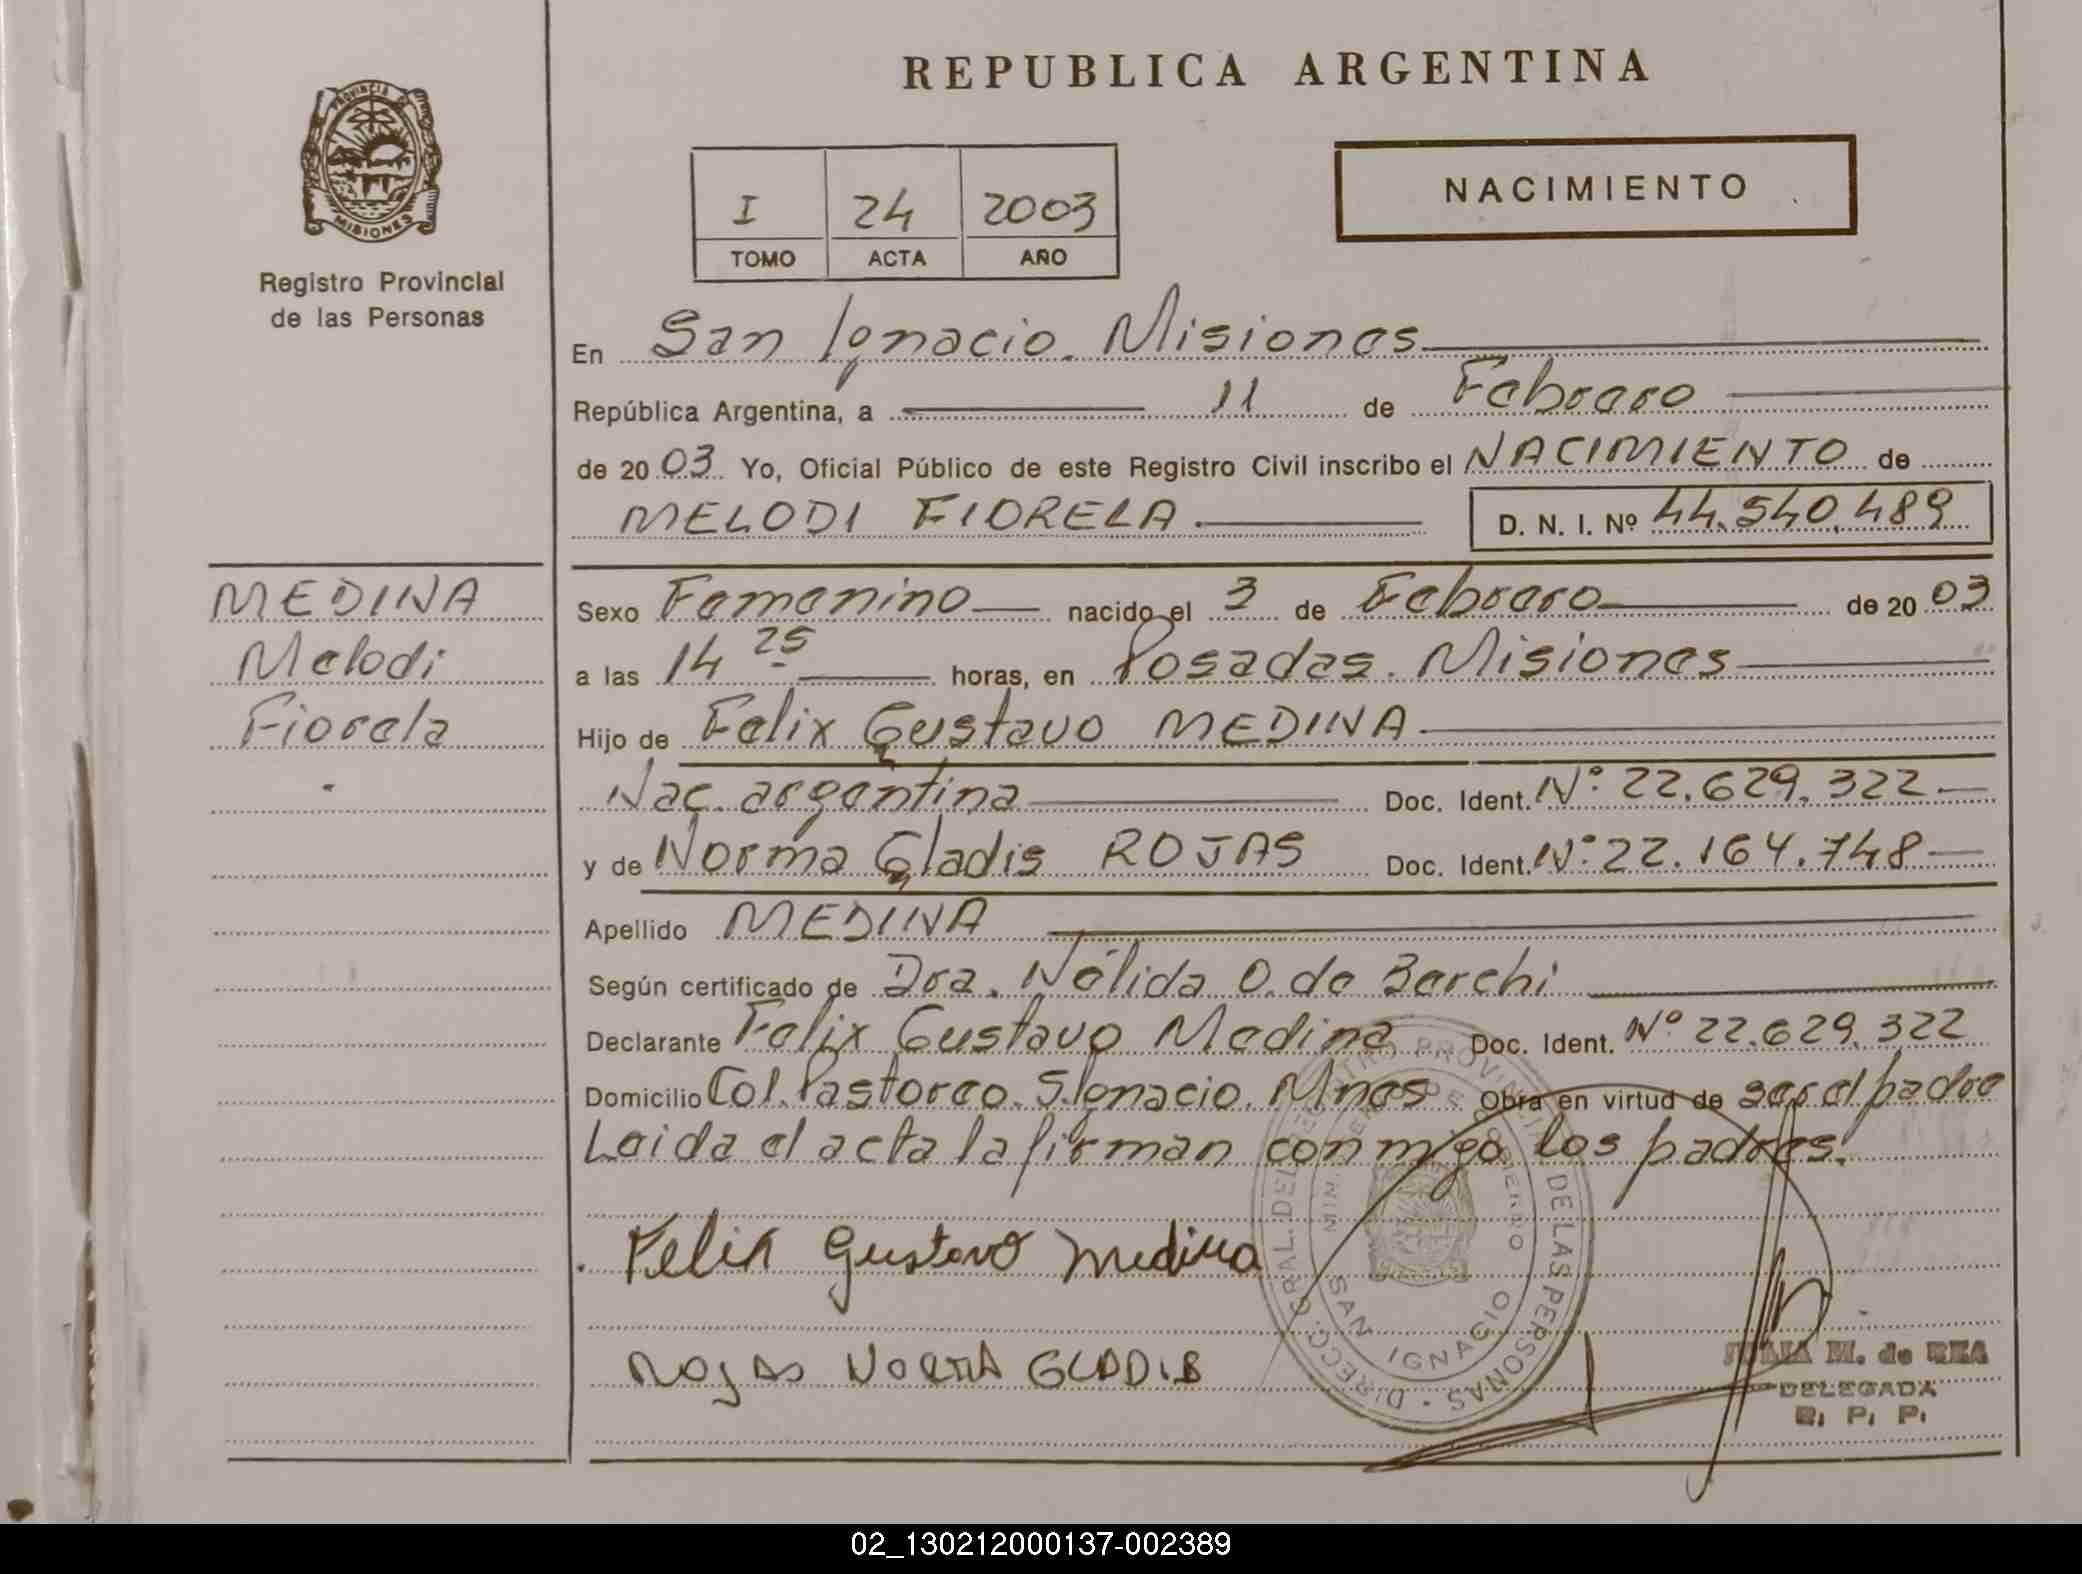 REPUBLICA ARGENTINA
PROVINCIA DE
MISIONES
Registro Provincial
de las Personas
I 24 2003
TOMO ACTA AÑO
NACIMIENTO
En San Ignacio. Misiones
República Argentina, a 11 de Febrero
de 2003. Yo, Oficial Público de este Registro Civil inscribo el NACIMIENTO de
MELODI FIORELA. D. N. I. Nº 44.540.489
MEDINA
Melodi
Fiorela
Sexo Femenino nacido el 3 de Febrero de 2003
a las 14 25 horas, en Posadas. Misiones
Hijo de Felix Gustavo MEDINA
Nac. argentina Doc. Ident. Nº 22.629.322
y de Norma Gladis ROJAS Doc. Ident. Nº 22.164.748
Apellido MEDINA
Según certificado de Dra. Nélida O. de Barchi
Declarante Felix Gustavo Medina Doc. Ident. Nº 22.629.322
Domicilio Col. Pastoreo. S. Ignacio. Mnes Obra en virtud de ser el padre
Leida el acta la firman conmigo los padres.
Felix Gustavo Medina
ROJAS NORMA GLADIS
DIRECC. GRAL. DEL REGISTRO PROVINCIAL DE LAS PERSONAS
MIN. DE GOBIERNO
SAN IGNACIO
M. de REA
DELEGADA
R. P. P.
02_130212000137-002389